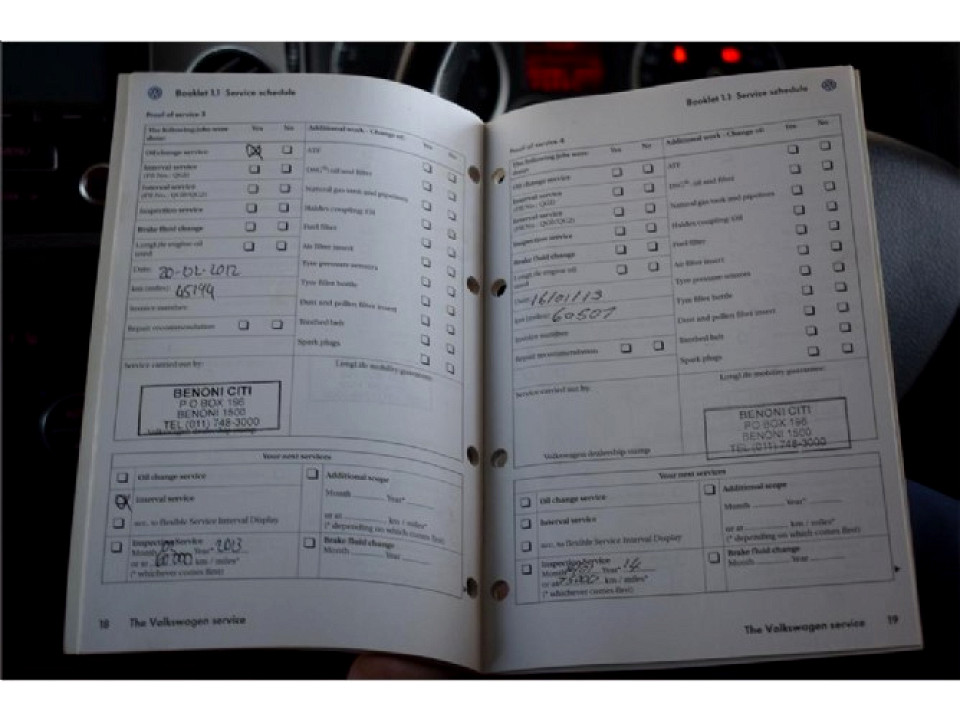 Booklet 1.1 Service schedule
Proof of service 5
The following jobs were done: Yes No
Oil change service
Interval service
(PR No.: QG2)
Interval service
(PR No.: QG0/QG2)
Inspection service
Brake fluid change
LongLife engine oil used
Date: 20-02-2012
km (miles): 45199
Invoice number:
Repair recommendation
Service carried out by:
BENONI CITI
P O BOX 196
BENONI 1500
TEL (011) 748-3000
Volkswagen dealership stamp
Additional work - Change of: Yes No
ATF
DSG® oil and filter
Natural gas tank and pipelines
Haldex coupling: Oil
Fuel filter
Air filter insert
Tyre pressure sensors
Tyre filler bottle
Dust and pollen filter insert
Toothed belt
Spark plugs
LongLife mobility guarantee:
Your next services
Oil change service
Interval service
acc. to flexible Service Interval Display
Inspection Service
Month Year* 2013
or at 60 000 km / miles*
(* whichever comes first)
Additional scope
Month Year*
or at km / miles*
(* depending on which comes first)
Brake fluid change
Month Year
18 The Volkswagen service
Booklet 1.1 Service schedule
Proof of service 6
The following jobs were done: Yes No
Oil change service
Interval service
(PR No.: QG2)
Interval service
(PR No.: QG0/QG2)
Inspection service
Brake fluid change
LongLife engine oil used
Date: 16/01/13
km (miles): 60507
Invoice number:
Repair recommendation:
Service carried out by:
Volkswagen dealership stamp
Additional work - Change of: Yes No
ATF
DSG® oil and filter
Natural gas tank and pipelines
Haldex coupling: Oil
Fuel filter
Air filter insert
Tyre pressure sensors
Tyre filler bottle
Dust and pollen filter insert
Toothed belt
Spark plugs
LongLife mobility guarantee:
BENONI CITI
P O BOX 196
BENONI 1500
TEL (011) 748-3000
Your next services
Oil change service
Interval service
acc. to flexible Service Interval Display
Inspection Service
Month Year* 14
or at 75000 km / miles*
(* whichever comes first)
Additional scope
Month Year*
or at km / miles*
(* depending on which comes first)
Brake fluid change
Month Year
The Volkswagen service 19